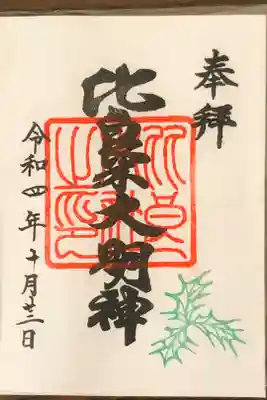 奉拝
比良木大明神
令和四年十月廿三日